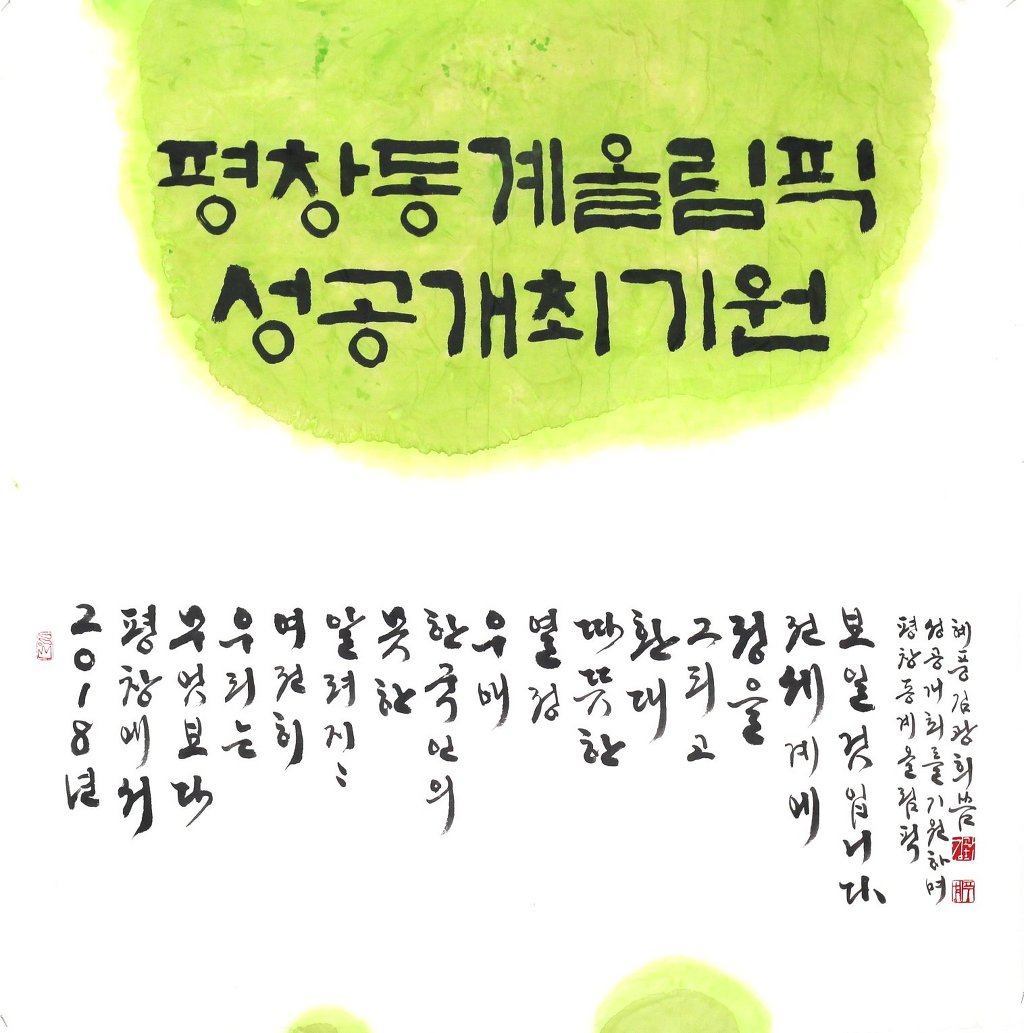 평창동계올림픽
성공개최기원
2018년
평창에서
무엇보다
우리는
여전히
알려지〻
못한
한국인의
우애
열정
따뜻한
환대
그리고
정을
전세계에
보일것입니다
평창동계올림픽
성공개최를기원하며
혜풍김광희씀